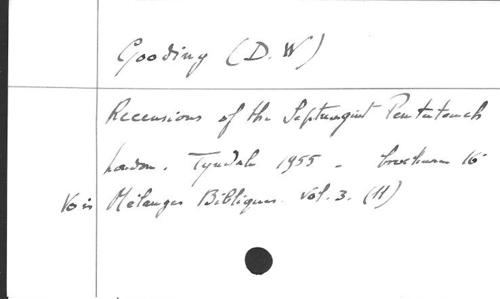 Gooding (D. W)
Recensions of the Septuagint Pentateuch
London. Tyndale 1955 - brochure 16°
Voir Mélanges Bibliques. Vol. 3. (11)